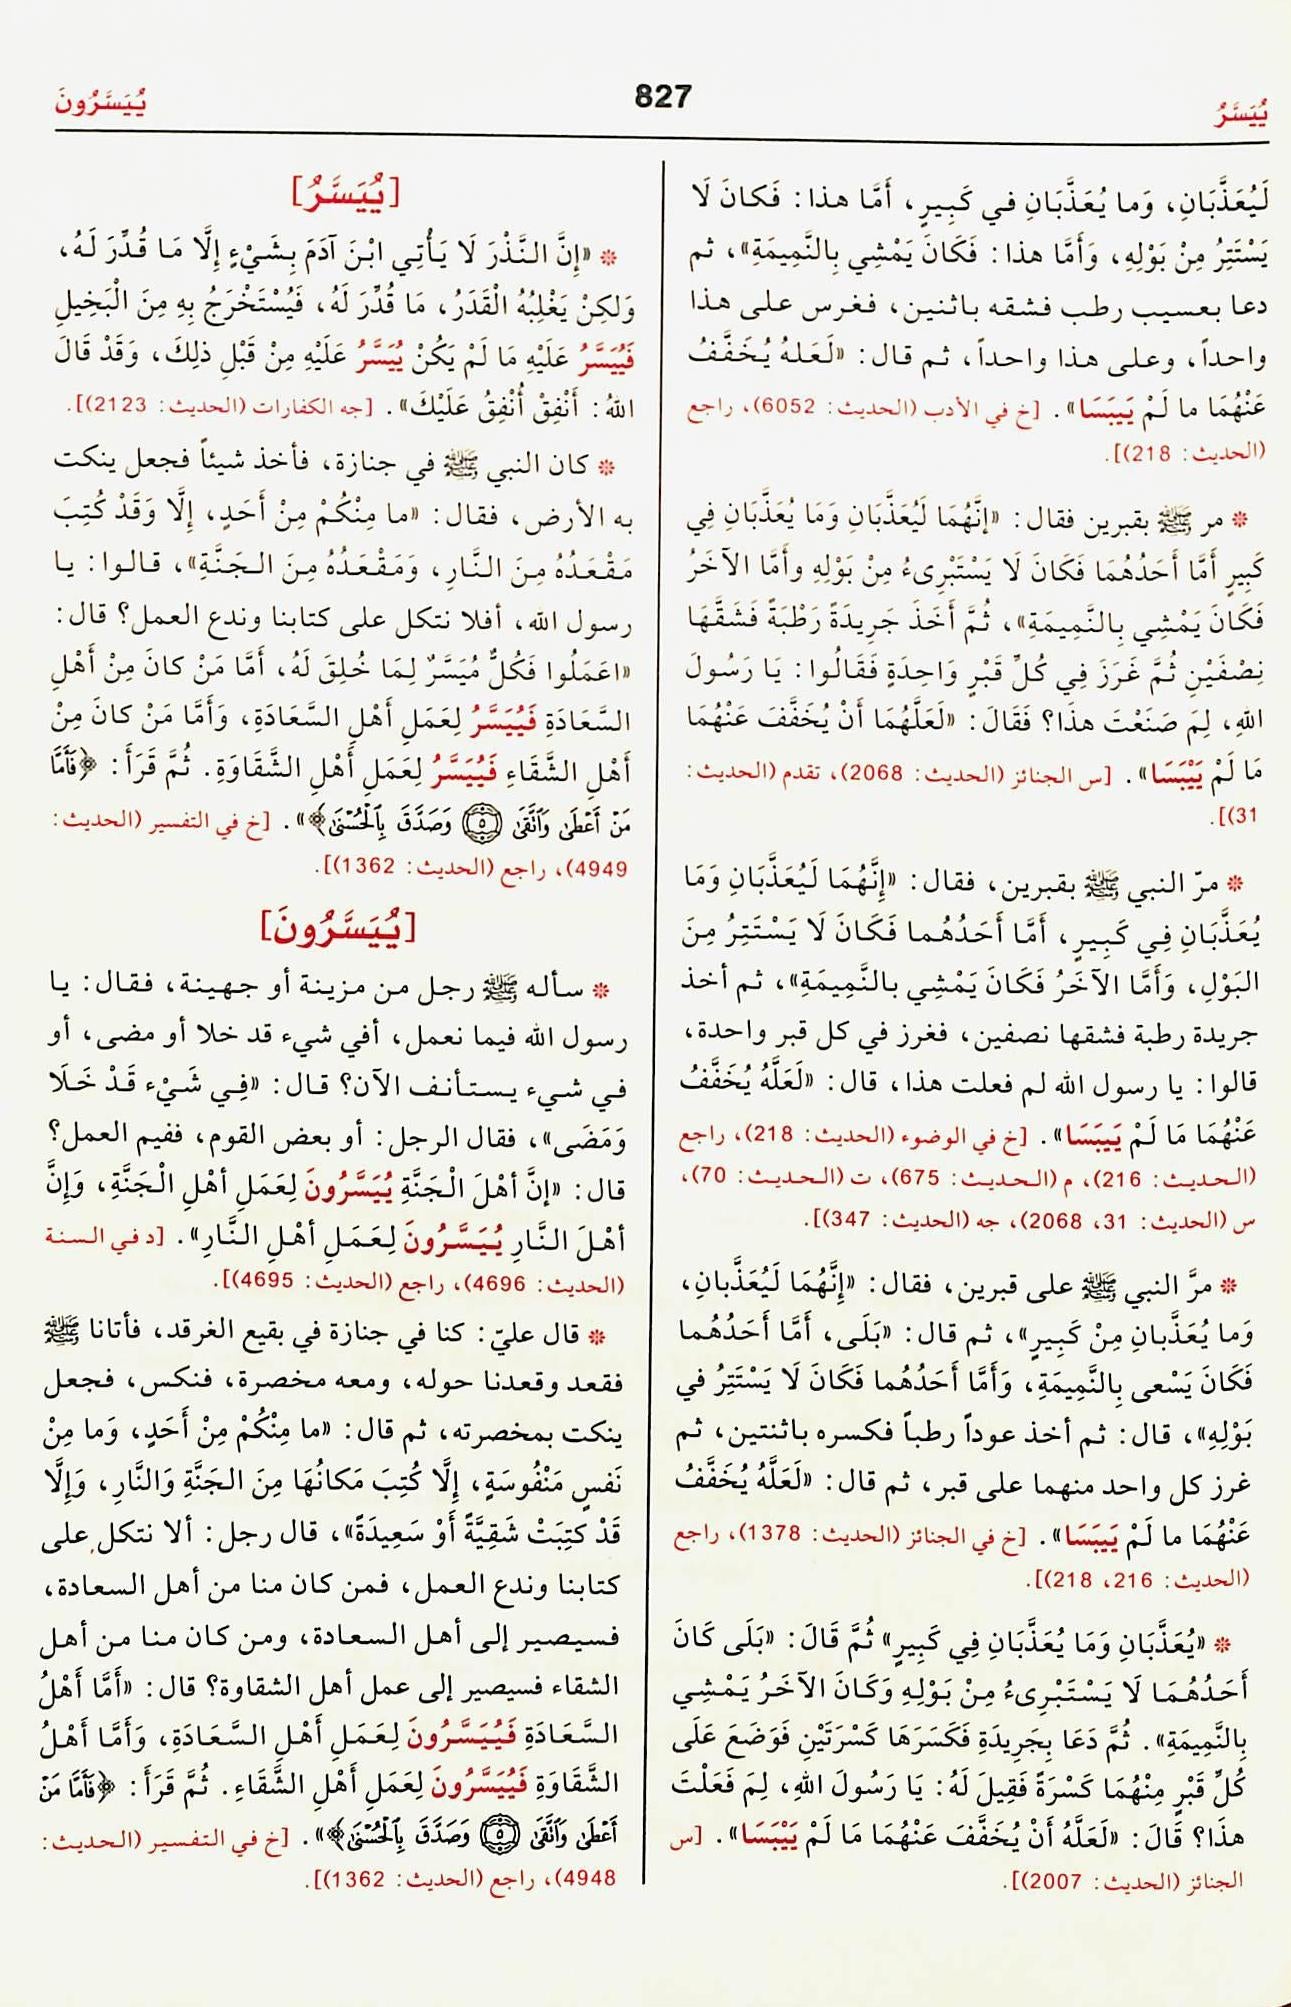 يُيَسَّرُ
827
يُيَسَّرُونَ
لَيُعَذَّبَانِ، وَما يُعَذَّبَانِ في كَبِيرٍ، أَمَّا هذا: فَكانَ لَا
يَسْتَتِرُ مِنْ بَوْلِهِ، وَأَمَّا هذا: فَكَانَ يَمْشِي بِالنَّمِيمَةِ»، ثم
دعا بعسيب رطب فشقه باثنين، فغرس على هذا
واحداً، وعلى هذا واحداً، ثم قال: «لَعَلهُ يُخَفَّفُ
عَنْهُمَا ما لَمْ يَيبَسَا». [خ في الأدب (الحديث: 6052)، راجع
(الحديث: 218)].
* مر ﷺ بقبرين فقال: «إنَّهُمَا لَيُعَذَّبَانِ وَمَا يُعَذَّبَانِ فِي
كَبِيرٍ أَمَّا أَحَدُهُمَا فَكَانَ لَا يَسْتَبْرِىءُ مِنْ بَوْلِهِ وأَمَّا الآخَرُ
فَكَانَ يَمْشِي بِالنَّمِيمَةِ»، ثُمَّ أَخَذَ جَرِيدَةً رَطْبَةً فَشَقَّهَا
نِصْفَيْنِ ثُمَّ غَرَزَ فِي كُلِّ قَبْرٍ وَاحِدَةٍ فَقَالُوا: يَا رَسُولَ
اللهِ، لِمَ صَنَعْتَ هذَا؟ فَقَالَ: «لَعَلَّهُمَا أَنْ يُخَفَّفَ عَنْهُمَا
مَا لَمْ يَيْبَسَا». [س الجنائز (الحديث: 2068)، تقدم (الحديث:
31)].
* مرّ النبي ﷺ بقبرين، فقال: «إِنَّهُمَا لَيُعَذَّبَانِ وَمَا
يُعَذَّبَانِ فِي كَبِيرٍ، أَمَّا أَحَدُهُما فَكَانَ لَا يَسْتَتِرُ مِنَ
البَوْلِ، وَأَمَّا الآخَرُ فَكَانَ يَمْشِي بالنَّمِيمَةِ»، ثم أخذ
جريدة رطبة فشقها نصفين، فغرز في كل قبر واحدة،
قالوا: يا رسول الله لم فعلت هذا، قال: «لَعَلَّهُ يُخَفَّفُ
عَنْهُمَا مَا لَمْ يَيبَسَا». [خ في الوضوء (الحديث: 218)، راجع
(الحديث: 216)، م (الحديث: 675)، ت (الحديث: 70)،
س (الحديث: 31، 2068)، جه (الحديث: 347)].
* مرَّ النبي ﷺ على قبرين، فقال: «إِنَّهُمَا لَيُعَذَّبانِ،
وَما يُعَذَّبانِ مِنْ كَبِيرٍ»، ثم قال: «بَلَى، أَمَّا أَحَدُهُما
فَكَانَ يَسْعى بِالنَّمِيمَةِ، وَأَمَّا أَحَدُهُما فَكَانَ لَا يَسْتَتِرُ في
بَوْلِهِ»، قال: ثم أخذ عوداً رطباً فكسره باثنتين، ثم
غرز كل واحد منهما على قبر، ثم قال: «لَعَلَّهُ يُخَفَّفُ
عَنْهُمَا ما لَمْ يَيبَسَا». [خ في الجنائز (الحديث: 1378)، راجع
(الحديث: 216، 218)].
* «يُعَذَّبَانِ وَمَا يُعَذَّبَانِ فِي كَبِيرٍ» ثُمَّ قَالَ: «بَلَى كَانَ
أَحَدُهُمَا لَا يَسْتَبْرِىءُ مِنْ بَوْلِهِ وَكَانَ الآخَرُ يَمْشِي
بِالنَّمِيمَةِ». ثُمَّ دَعَا بِجَرِيدَةِ فَكَسَرَهَا كَسْرَتَيْنِ فَوَضَعَ عَلَى
كُلِّ قَبْرٍ مِنْهُمَا كَسْرَةً فَقِيلَ لَهُ: يَا رَسُولَ اللهِ، لِمَ فَعَلْتَ
هذَا؟ قَالَ: «لَعَلَّهُ أَنْ يُخَفَّفَ عَنْهُمَا مَا لَمْ يَيْبَسَا». [س
الجنائز (الحديث: 2007)].
[يُيَسَّرُ]
* «إِنَّ النَّذْرَ لَا يَأْتِي ابْنَ آدَمَ بِشَيْءٍ إِلَّا مَا قُدِّرَ لَهُ،
وَلكِنْ يَغْلِبُهُ الْقَدَرُ، مَا قُدِّرَ لَهُ، فَيُسْتَخْرَجُ بِهِ مِنَ الْبَخِيلِ
فَيُيَسَّرُ عَلَيْهِ مَا لَمْ يَكُنْ يُيَسَّرُ عَلَيْهِ مِنْ قَبْلِ ذلِكَ، وَقَدْ قَالَ
اللهُ: أَنْفِقْ أُنْفِقُ عَلَيْكَ». [جه الكفارات (الحديث: 2123)].
* كان النبي ﷺ في جنازة، فأخذ شيئاً فجعل ينكت
به الأرض، فقال: «ما مِنْكُمْ مِنْ أَحَدٍ، إِلَّا وَقَدْ كُتِبَ
مَقْعَدُهُ مِنَ النَّارِ، وَمَقْعَدُهُ مِنَ الجَنَّةِ»، قالوا: يا
رسول الله، أفلا نتكل على كتابنا وندع العمل؟ قال:
«اعَمَلُوا فَكُلٌّ مُيَسَّرٌ لِمَا خُلِقَ لَهُ، أَمَّا مَنْ كانَ مِنْ أَهْلِ
السَّعَادَةِ فَيُيَسَّرُ لِعَمَلِ أَهْلِ السَّعَادَةِ، وَأَمَّا مَنْ كانَ مِنْ
أَهْلِ الشَّقَاءِ فَيُيَسَّرُ لِعَمَلِ أَهْلِ الشَّقَاوَةِ. ثُمَّ قَرَأَ: ﴿فَأَمَّا
مَنْ أَعْطَى وَاتَّقَى ۝٥ وَصَدَّقَ بِالْحُسْنَى﴾». [خ في التفسير (الحديث:
4949)، راجع (الحديث: 1362)].
[يُيَسَّرُونَ]
* سأله ﷺ رجل من مزينة أو جهينة، فقال: يا
رسول الله فيما نعمل، أفي شيء قد خلا أو مضى، أو
في شيء يستأنف الآن؟ قال: «فِي شَيْء قَدْ خَلَا
وَمَضَى»، فقال الرجل: أو بعض القوم، ففيم العمل؟
قال: «إنَّ أهْلَ الْجَنَّةِ يُيَسَّرُونَ لِعَمَلِ أهْلِ الْجَنَّةِ، وَإِنَّ
أهْلَ النَّارِ يُيَسَّرُونَ لِعَمَلِ أهْلِ النَّارِ». [د في السنة
(الحديث: 4696)، راجع (الحديث: 4695)].
* قال عليّ: كنا في جنازة في بقيع الغرقد، فأتانا ﷺ
فقعد وقعدنا حوله، ومعه مخصرة، فنكس، فجعل
ينكت بمخصرته، ثم قال: «ما مِنْكُمْ مِنْ أَحَدٍ، وَما مِنْ
نَفسٍ مَنْفُوسَةٍ، إِلَّا كُتِبَ مَكانُهَا مِنَ الجَنَّةِ وَالنَّارِ، وَإِلَّا
قَدْ كُتِبَتْ شَقِيَّةً أَوْ سَعِيدَةً»، قال رجل: ألا نتكل على
كتابنا وندع العمل، فمن كان منا من أهل السعادة،
فسيصير إلى أهل السعادة، ومن كان منا من أهل
الشقاء فسيصير إلى عمل أهل الشقاوة؟ قال: «أَمَّا أَهْلُ
السَّعَادَةِ فَيُيَسَّرُونَ لِعَمَلِ أَهْلِ السَّعَادَةِ، وَأَمَّا أَهْلُ
الشَّقَاوَةِ فَيُيَسَّرُونَ لِعَمَلِ أَهْلِ الشَّقَاءِ. ثُمَّ قَرَأَ: ﴿فَأَمَّا مَنْ
أَعْطَى وَاتَّقَى ۝٥ وَصَدَّقَ بِالْحُسْنَى﴾». [خ في التفسير (الحديث:
4948)، راجع (الحديث: 1362)].